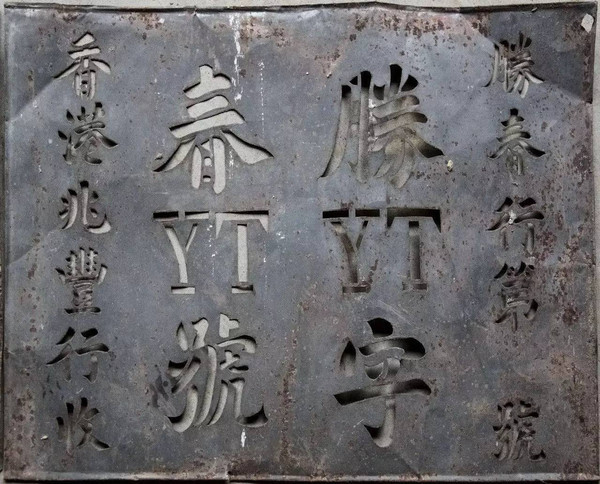 勝春行第 號
勝YT字
春YT號
香港兆豐行收